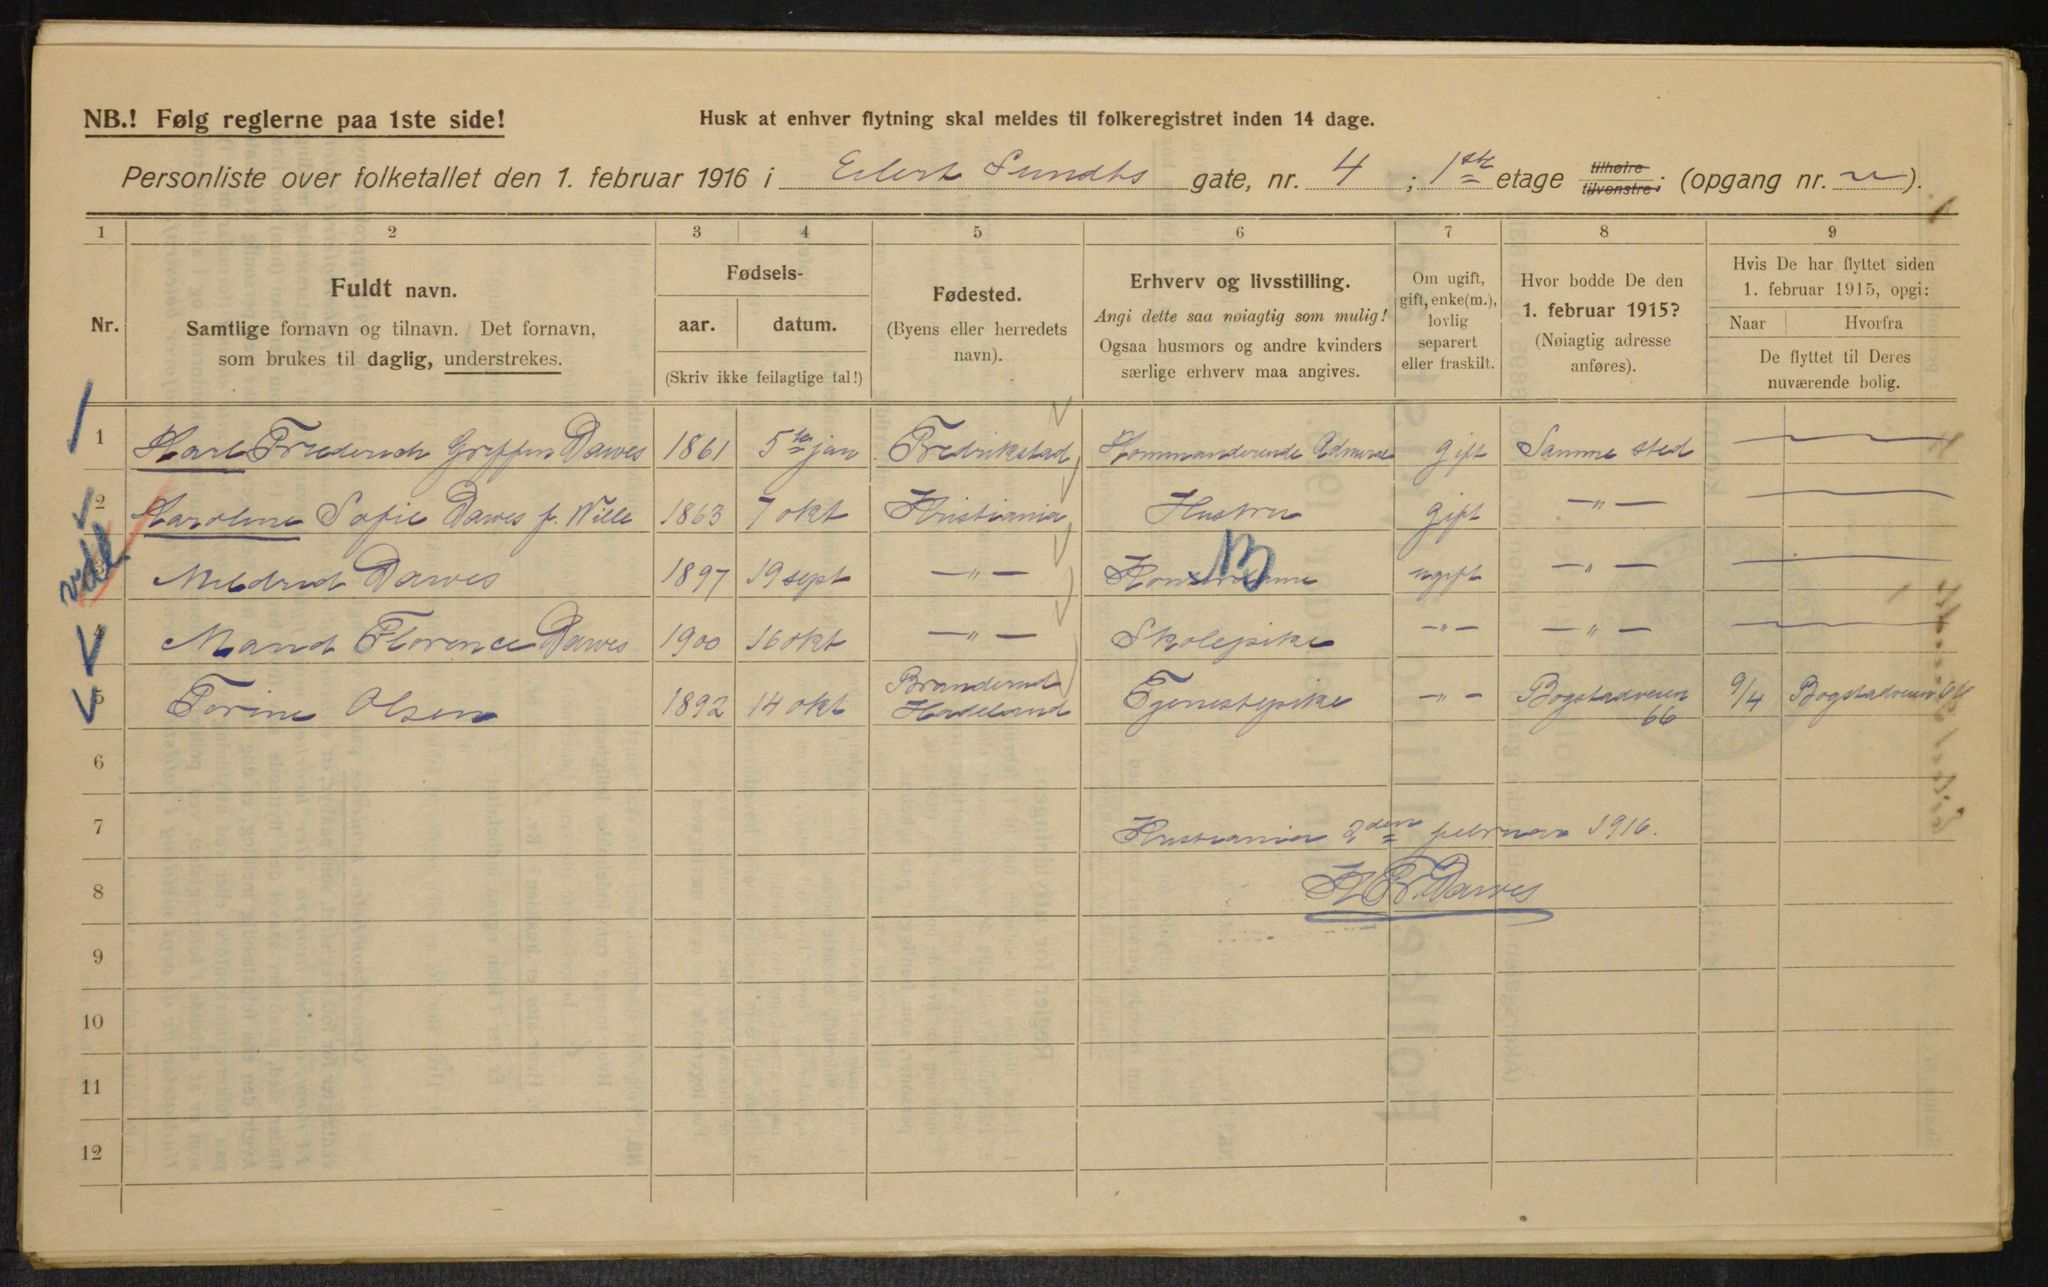 NB.! Følg reglerne paa 1ste side!
Husk at enhver flytning skal meldes til folkeregistret inden 14 dage.
Personliste over folketallet den 1. februar 1916 i Eilert Sundts gate, nr. 4 ; 1ste etage tilhøire tilvenstre; (opgang nr. ).
1 2 3 4 5 6 7 8 9
Nr.
Fuldt navn.
Samtlige fornavn og tilnavn. Det fornavn,
som brukes til daglig, understrekes.
Fødsels-
aar. datum.
(Skriv ikke feilagtige tal!)
Fødested.
(Byens eller herredets
navn).
Erhverv og livsstilling.
Angi dette saa nøiagtig som mulig!
Ogsaa husmors og andre kvinders
særlige erhverv maa angives.
Om ugift,
gift, enke(m.),
lovlig
separert
eller fraskilt.
Hvor bodde De den
1. februar 1915?
(Nøiagtig adresse
anføres).
Hvis De har flyttet siden
1. februar 1915, opgi:
Naar Hvorfra
De flyttet til Deres
nuværende bolig.
1 Karl Frederich Griffin Dawes 1861 5te jan Fredrikstad Kommanderende Admiral gift Samme sted
2 Karoline Sofie Dawes f. Wille 1863 7 okt Kristiania Hustru gift —"—
Mildred Dawes 1897 19 sept —"— ugift —"—
Maud Florence Dawes 1900 16 okt —"— Skolepike —"— —"—
5 Torine Olsen 1892 14 okt Brandbu Hadeland Tjenestepike —"— Bogstadveien 66 9/4 Bogstadveien 66
6
7
Kristiania 2den februar 1916.
8
K Fr. Dawes
9
10
11
12